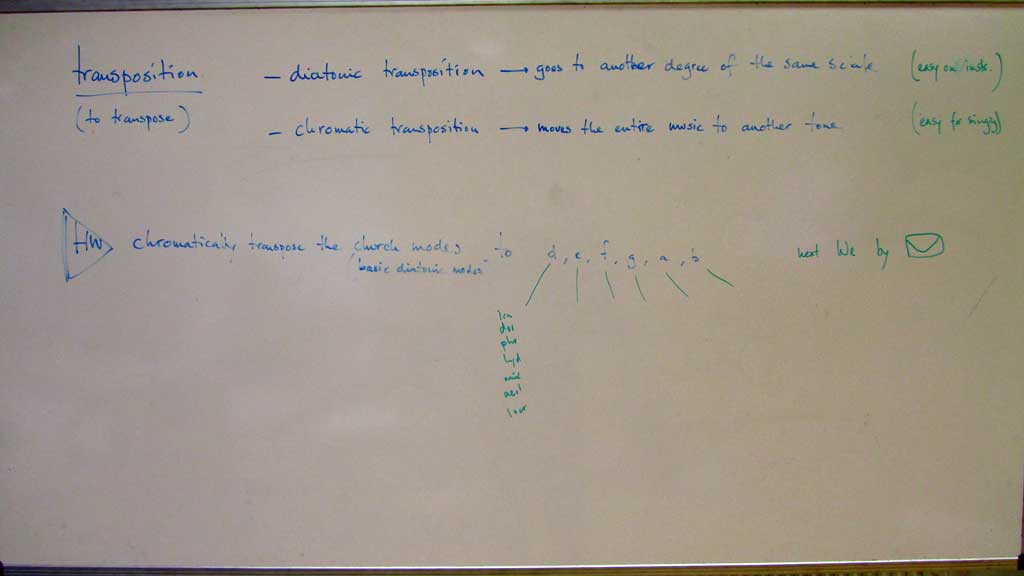 transposition – diatonic transposition → goes to another degree of the same scale (easy on instr.)
(to transpose) – chromatic transposition → moves the entire music to another tone (easy for singing)
HW chromatically transpose the church modes to d, e, f, g, a, b next We by
basic diatonic modes
ion
dor
phr
lyd
mix
aeol
locr